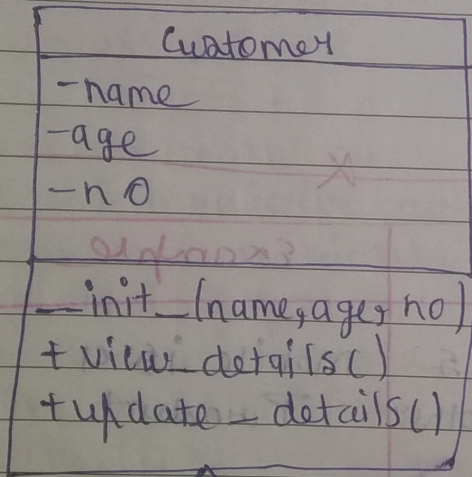 Customer
-name
-age
-no
__init_(name, age, no)
+ view_details()
+ update_details()